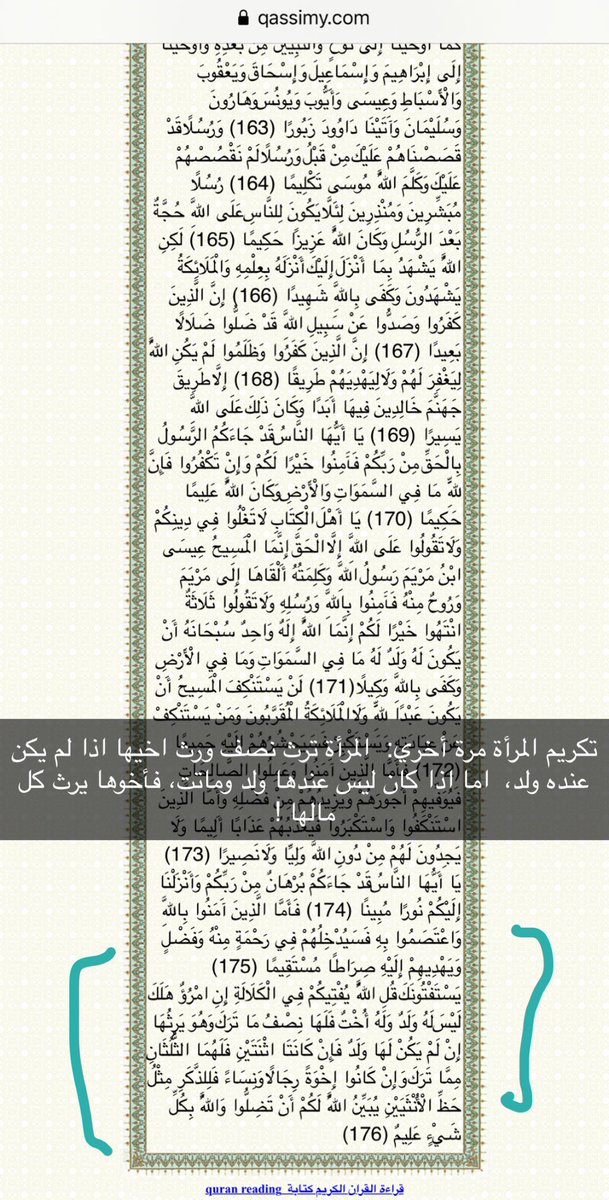 qassimy.com
كما أوحينا إلى نوح والنبيين من بعده وأوحينا
إِلَى إِبْرَاهِيمَ وَإِسْمَاعِيلَ وَإِسْحَاقَ وَيَعْقُوبَ
وَالْأَسْبَاطِ وَعِيسَى وَأَيُّوبَ وَيُونُسَ وَهَارُونَ
وَسُلَيْمَانَ وَآتَيْنَا دَاوُودَ زَبُورًا (163) وَرُسُلًا قَدْ
قَصَصْنَاهُمْ عَلَيْكَ مِنْ قَبْلُ وَرُسُلًا لَمْ نَقْصُصْهُمْ
عَلَيْكَ وَكَلَّمَ اللَّهُ مُوسَى تَكْلِيمًا (164) رُسُلًا
مُبَشِّرِينَ وَمُنْذِرِينَ لِئَلَّا يَكُونَ لِلنَّاسِ عَلَى اللَّهِ حُجَّةٌ
بَعْدَ الرُّسُلِ وَكَانَ اللَّهُ عَزِيزًا حَكِيمًا (165) لَكِنِ
اللَّهُ يَشْهَدُ بِمَا أَنْزَلَ إِلَيْكَ أَنْزَلَهُ بِعِلْمِهِ وَالْمَلَائِكَةُ
يَشْهَدُونَ وَكَفَى بِاللَّهِ شَهِيدًا (166) إِنَّ الَّذِينَ
كَفَرُوا وَصَدُّوا عَنْ سَبِيلِ اللَّهِ قَدْ ضَلُّوا ضَلَالًا
بَعِيدًا (167) إِنَّ الَّذِينَ كَفَرُوا وَظَلَمُوا لَمْ يَكُنِ اللَّهُ
لِيَغْفِرَ لَهُمْ وَلَا لِيَهْدِيَهُمْ طَرِيقًا (168) إِلَّا طَرِيقَ
جَهَنَّمَ خَالِدِينَ فِيهَا أَبَدًا وَكَانَ ذَلِكَ عَلَى اللَّهِ
يَسِيرًا (169) يَا أَيُّهَا النَّاسُ قَدْ جَاءَكُمُ الرَّسُولُ
بِالْحَقِّ مِنْ رَبِّكُمْ فَآمِنُوا خَيْرًا لَكُمْ وَإِنْ تَكْفُرُوا فَإِنَّ
لِلَّهِ مَا فِي السَّمَوَاتِ وَالْأَرْضِ وَكَانَ اللَّهُ عَلِيمًا
حَكِيمًا (170) يَا أَهْلَ الْكِتَابِ لَا تَغْلُوا فِي دِينِكُمْ
وَلَا تَقُولُوا عَلَى اللَّهِ إِلَّا الْحَقَّ إِنَّمَا الْمَسِيحُ عِيسَى
ابْنُ مَرْيَمَ رَسُولُ اللَّهِ وَكَلِمَتُهُ أَلْقَاهَا إِلَى مَرْيَمَ
وَرُوحٌ مِنْهُ فَآمِنُوا بِاللَّهِ وَرُسُلِهِ وَلَا تَقُولُوا ثَلَاثَةٌ
انْتَهُوا خَيْرًا لَكُمْ إِنَّمَا اللَّهُ إِلَهٌ وَاحِدٌ سُبْحَانَهُ أَنْ
يَكُونَ لَهُ وَلَدٌ لَهُ مَا فِي السَّمَوَاتِ وَمَا فِي الْأَرْضِ
وَكَفَى بِاللَّهِ وَكِيلًا (171) لَنْ يَسْتَنْكِفَ الْمَسِيحُ أَنْ
يَكُونَ عَبْدًا لِلَّهِ وَلَا الْمَلَائِكَةُ الْمُقَرَّبُونَ وَمَنْ يَسْتَنْكِفْ
تكريم المرأة مرة أخرى ، المرأة ترث نصف ورث اخيها اذا لم يكن
عنده ولد، اما إذا كان ليس عندها ولد وماتت، فأخوها يرث كل
مالها !
(172) فَأَمَّا الَّذِينَ آمَنُوا وَعَمِلُوا الصَّالِحَاتِ
فَيُوَفِّيهِمْ أُجُورَهُمْ وَيَزِيدُهُمْ مِنْ فَضْلِهِ وَأَمَّا الَّذِينَ
اسْتَنْكَفُوا وَاسْتَكْبَرُوا فَيُعَذِّبُهُمْ عَذَابًا أَلِيمًا وَلَا
يَجِدُونَ لَهُمْ مِنْ دُونِ اللَّهِ وَلِيًّا وَلَا نَصِيرًا (173)
يَا أَيُّهَا النَّاسُ قَدْ جَاءَكُمْ بُرْهَانٌ مِنْ رَبِّكُمْ وَأَنْزَلْنَا
إِلَيْكُمْ نُورًا مُبِينًا (174) فَأَمَّا الَّذِينَ آمَنُوا بِاللَّهِ
وَاعْتَصَمُوا بِهِ فَسَيُدْخِلُهُمْ فِي رَحْمَةٍ مِنْهُ وَفَضْلٍ
وَيَهْدِيهِمْ إِلَيْهِ صِرَاطًا مُسْتَقِيمًا (175)
يَسْتَفْتُونَكَ قُلِ اللَّهُ يُفْتِيكُمْ فِي الْكَلَالَةِ إِنِ امْرُؤٌ هَلَكَ
لَيْسَ لَهُ وَلَدٌ وَلَهُ أُخْتٌ فَلَهَا نِصْفُ مَا تَرَكَ وَهُوَ يَرِثُهَا
إِنْ لَمْ يَكُنْ لَهَا وَلَدٌ فَإِنْ كَانَتَا اثْنَتَيْنِ فَلَهُمَا الثُّلُثَانِ
مِمَّا تَرَكَ وَإِنْ كَانُوا إِخْوَةً رِجَالًا وَنِسَاءً فَلِلذَّكَرِ مِثْلُ
حَظِّ الْأُنْثَيَيْنِ يُبَيِّنُ اللَّهُ لَكُمْ أَنْ تَضِلُّوا وَاللَّهُ بِكُلِّ
شَيْءٍ عَلِيمٌ (176)
قراءة القران الكريم كتابة quran reading